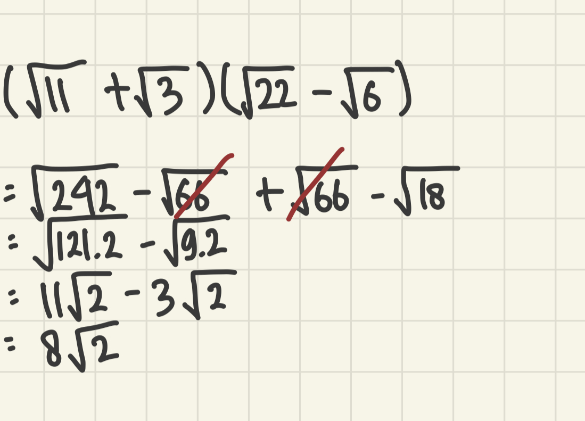 (√11 + √3)(√22 − √6)
= √242 − √66 + √66 − √18
= √121.2 − √9.2
= 11√2 − 3√2
= 8√2